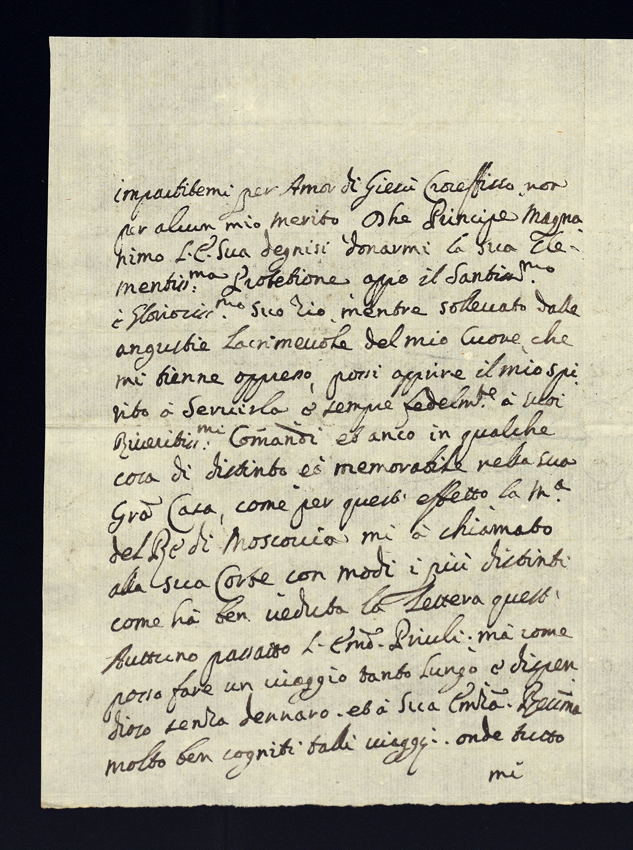 impartitemi per Amor di Giesù Crocefisso, non
per alcun mio merito. O che Principe Magna
nimo L. E. Sua degnisi donarmi la sua Cle-
mentiss:ma Protetione appo il Santiss:mo
è Glorioziss:mo Suo Zio, mentre solleuato dalle
angustie Lacrimeuole del mio Cuore, che
mi tienne oppresso, possi apprire il mio spi
rito à Seruirla è sempre fedelmte. à suoi
Riueritiss:mi Comandi et anco in qualche
cosa di distinto et memorabile nella sua
Gra Casa, come per questi effetto la Ma.
del Rè di Moscouia mi à chiamato
alla sua Corte con modi i più distinti
come hà ben ueduta la Lettera quest'
Auttuno passatto L. Emo. Priuli. mà come
posso fare un uiaggio tanto Lungo è dispen
dioso senza dennaro. et à Sua Emza. Reuma
molto ben cogniti talli uiaggi. onde tutto
mi